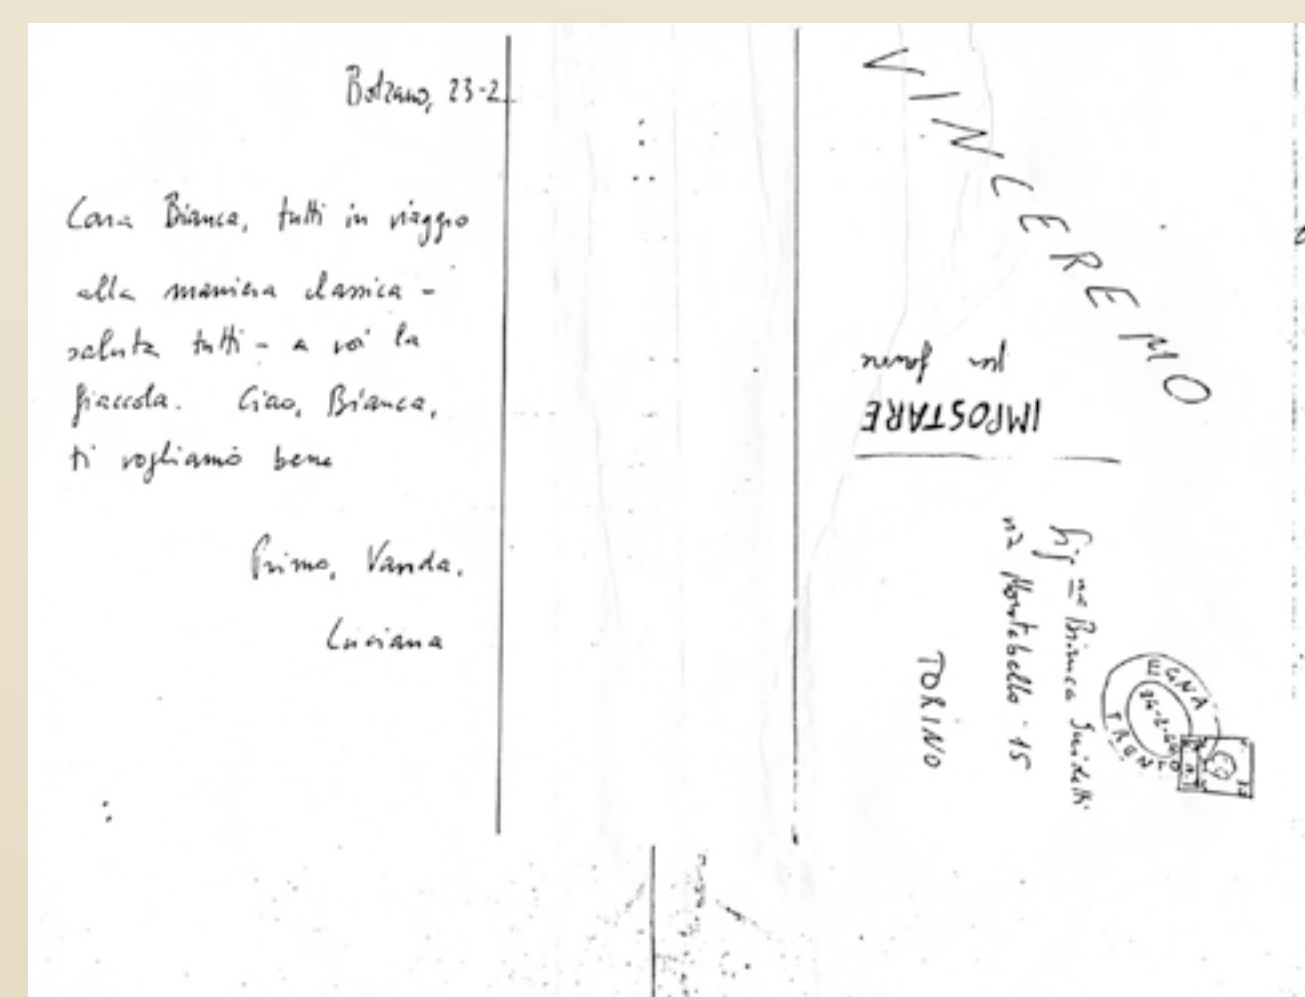 Bolzano, 23-2
Cara Bianca, tutti in viaggio
alla maniera classica -
saluta tutti - a voi la
fiaccola. Ciao, Bianca,
ti vogliamo bene
Primo, Vanda,
Luciana
VINCEREMO
per favore
IMPOSTARE
Sig.na Bianca Guidetti
via Montebello 15
TORINO
EGNA
TRENTO